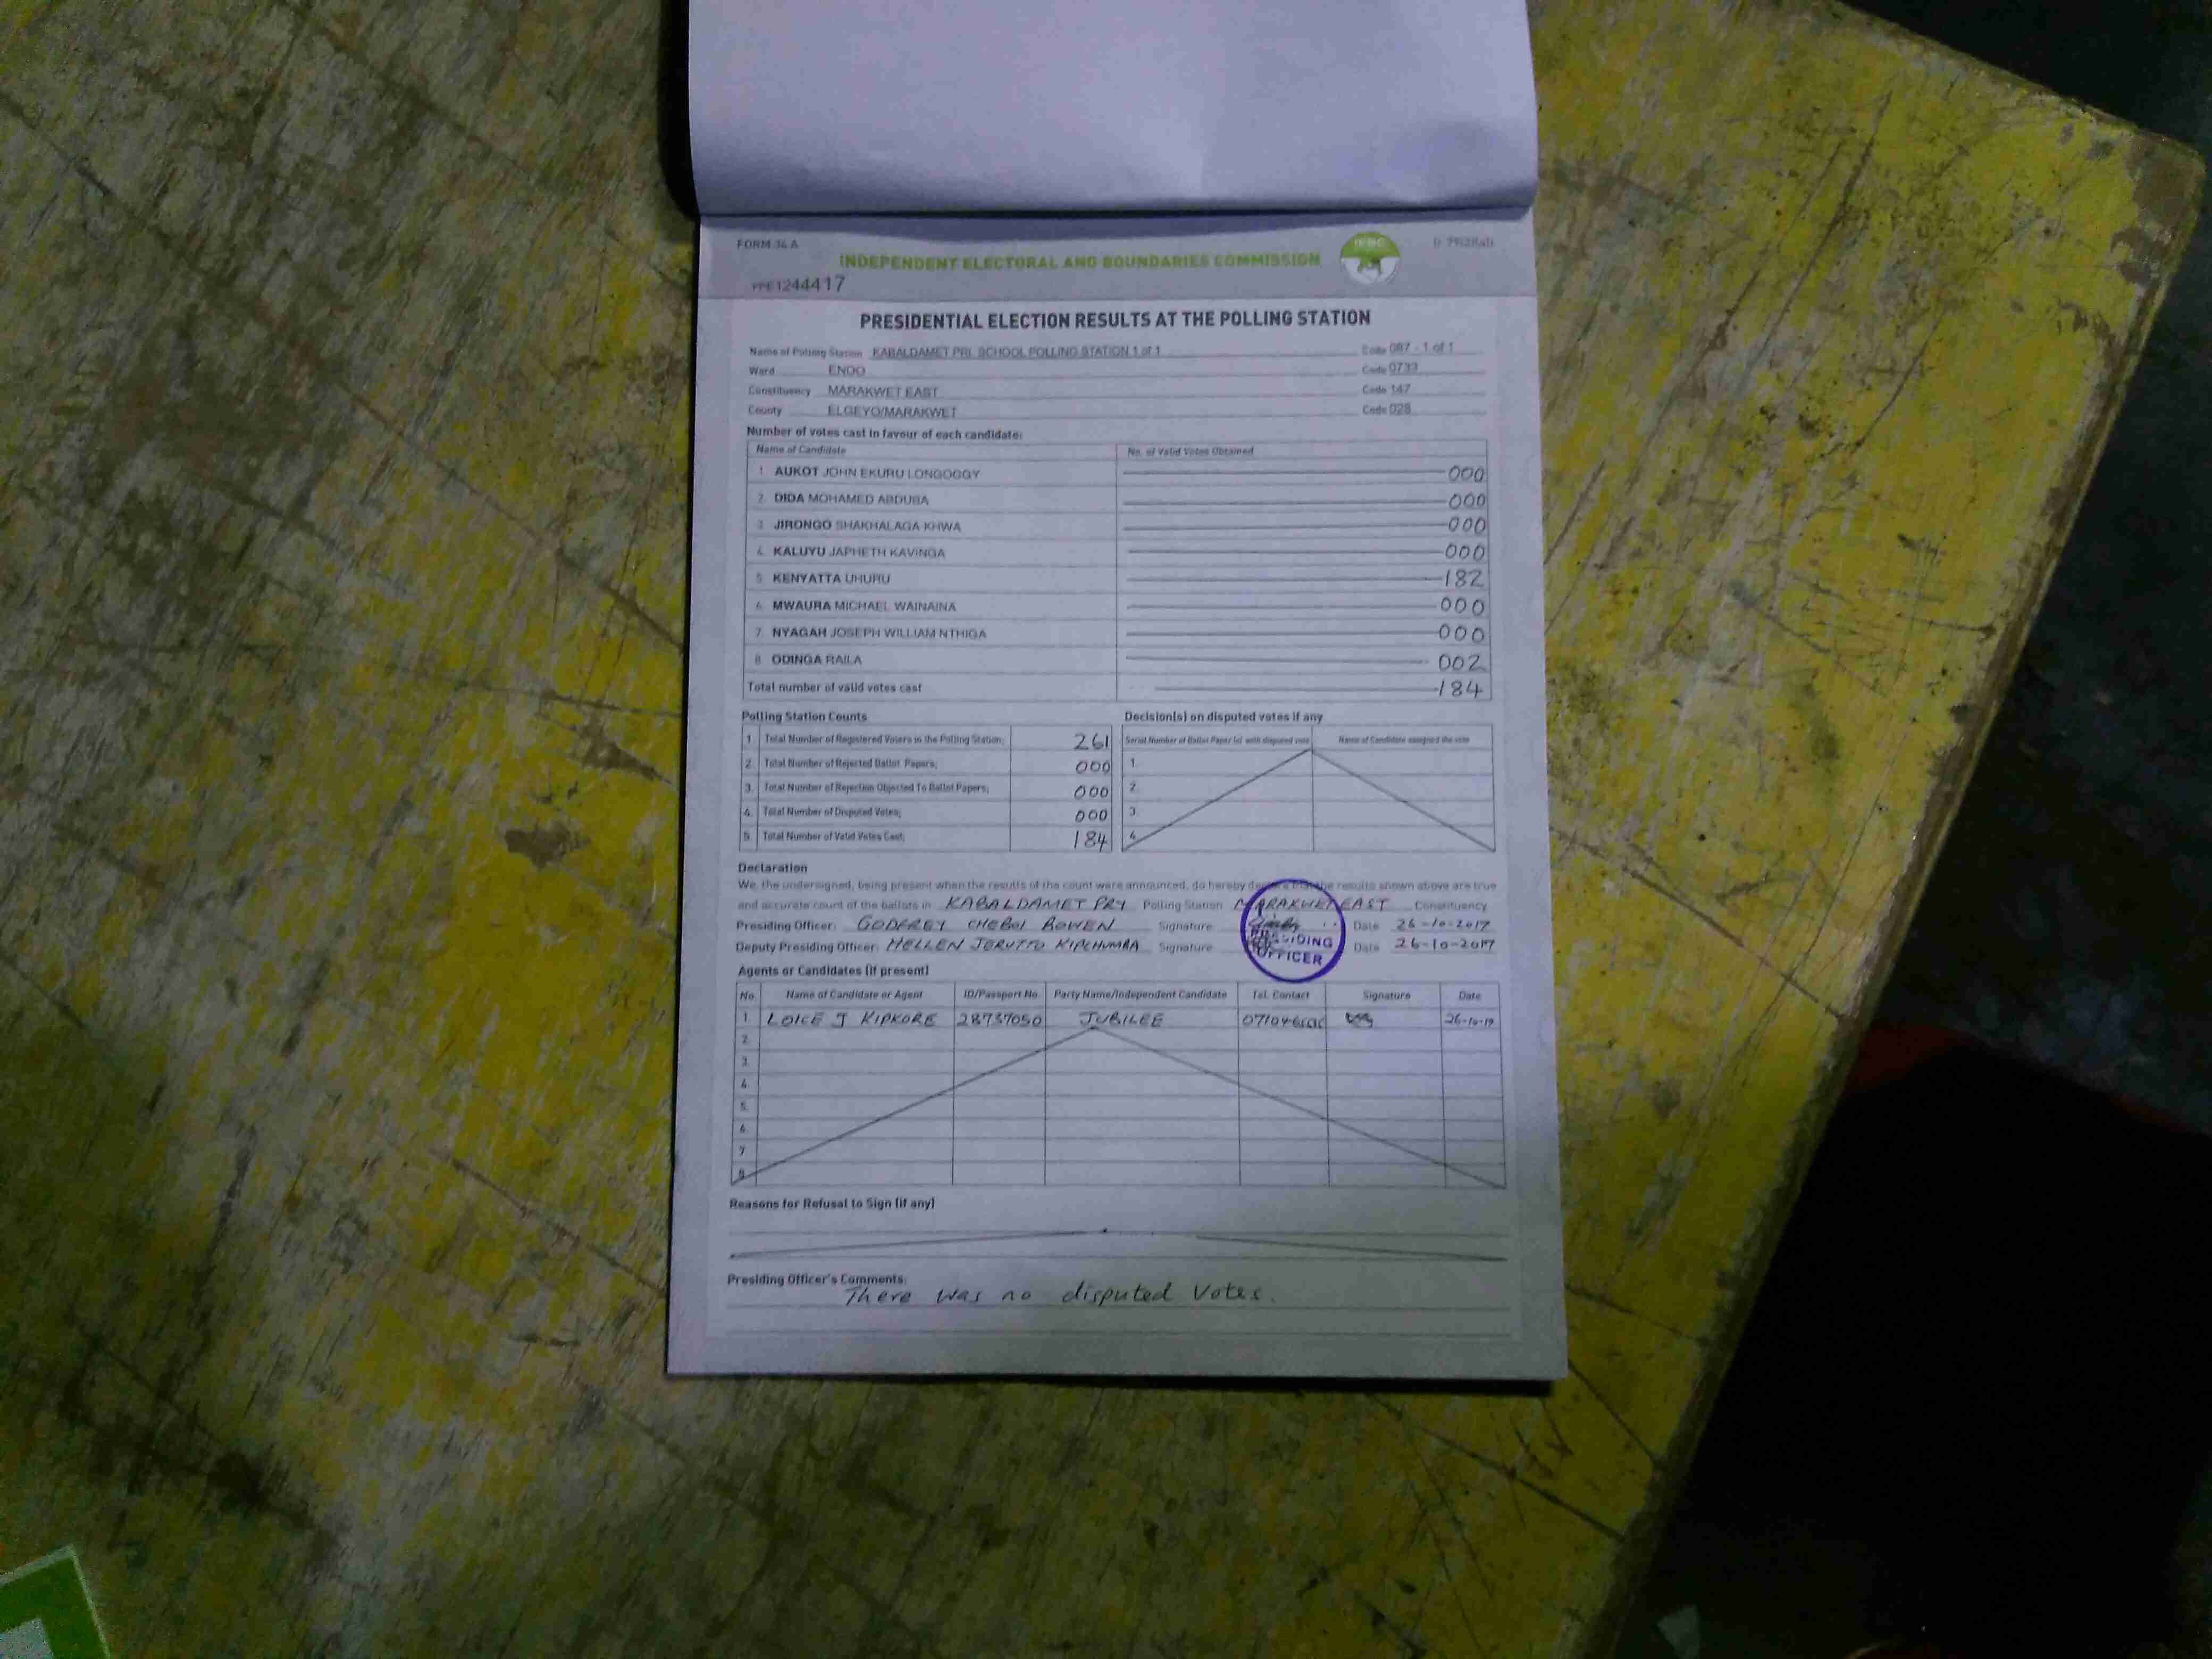 FORM 34 A
INDEPENDENT ELECTORAL AND BOUNDARIES COMMISSION
1244417
PRESIDENTIAL ELECTION RESULTS AT THE POLLING STATION
Name of Polling Station KABALDAMET PRI. SCHOOL POLLING STATION 1 of 1 Code 087 - 1 of 1
Ward ENDO Code 0733
Constituency MARAKWET EAST Code 147
County ELGEYO/MARAKWET Code 028
Number of votes cast in favour of each candidate:
Name of Candidate No. of Valid Votes Obtained
1. AUKOT JOHN EKURU LONGOGGY 000
2. DIDA MOHAMED ABDUBA 000
3. JIRONGO SHAKHALAGA KHWA 000
4. KALUYU JAPHETH KAVINGA 000
5. KENYATTA UHURU 182
6. MWAURA MICHAEL WAINAINA 000
7. NYAGAH JOSEPH WILLIAM NTHIGA 000
8. ODINGA RAILA 002
Total number of valid votes cast 184
Polling Station Counts Decision(s) on disputed votes if any
Serial Number of Ballot Paper (s) with disputed vote Name of Candidate assigned the vote
1. Total Number of Registered Voters in the Polling Station; 261 1.
2. Total Number of Rejected Ballot Papers; 000 2.
3. Total Number of Rejection Objected To Ballot Papers; 000 3.
4. Total Number of Disputed Votes; 000 4.
5. Total Number of Valid Votes Cast; 184
Declaration
We, the undersigned, being present when the results of the count were announced, do hereby declare that the results shown above are true
and accurate count of the ballots in KABALDAMET PRY Polling Station MARAKWET EAST Constituency
Presiding Officer: GODFREY CHEBOI BOWEN Signature Date 26-10-2017
Deputy Presiding Officer: HELLEN JERUTTO KIPCHUMBA Signature Date 26-10-2017
PRESIDING
OFFICER
Agents or Candidates (if present)
No. Name of Candidate or Agent ID/Passport No Party Name/Independent Candidate Tel. Contact Signature Date
1. LOICE J KIPKORE 28737050 JUBILEE 26-10-17
2.
3.
4.
5.
6.
7.
8.
Reasons for Refusal to Sign (if any)
Presiding Officer's Comments:
There was no disputed Votes.